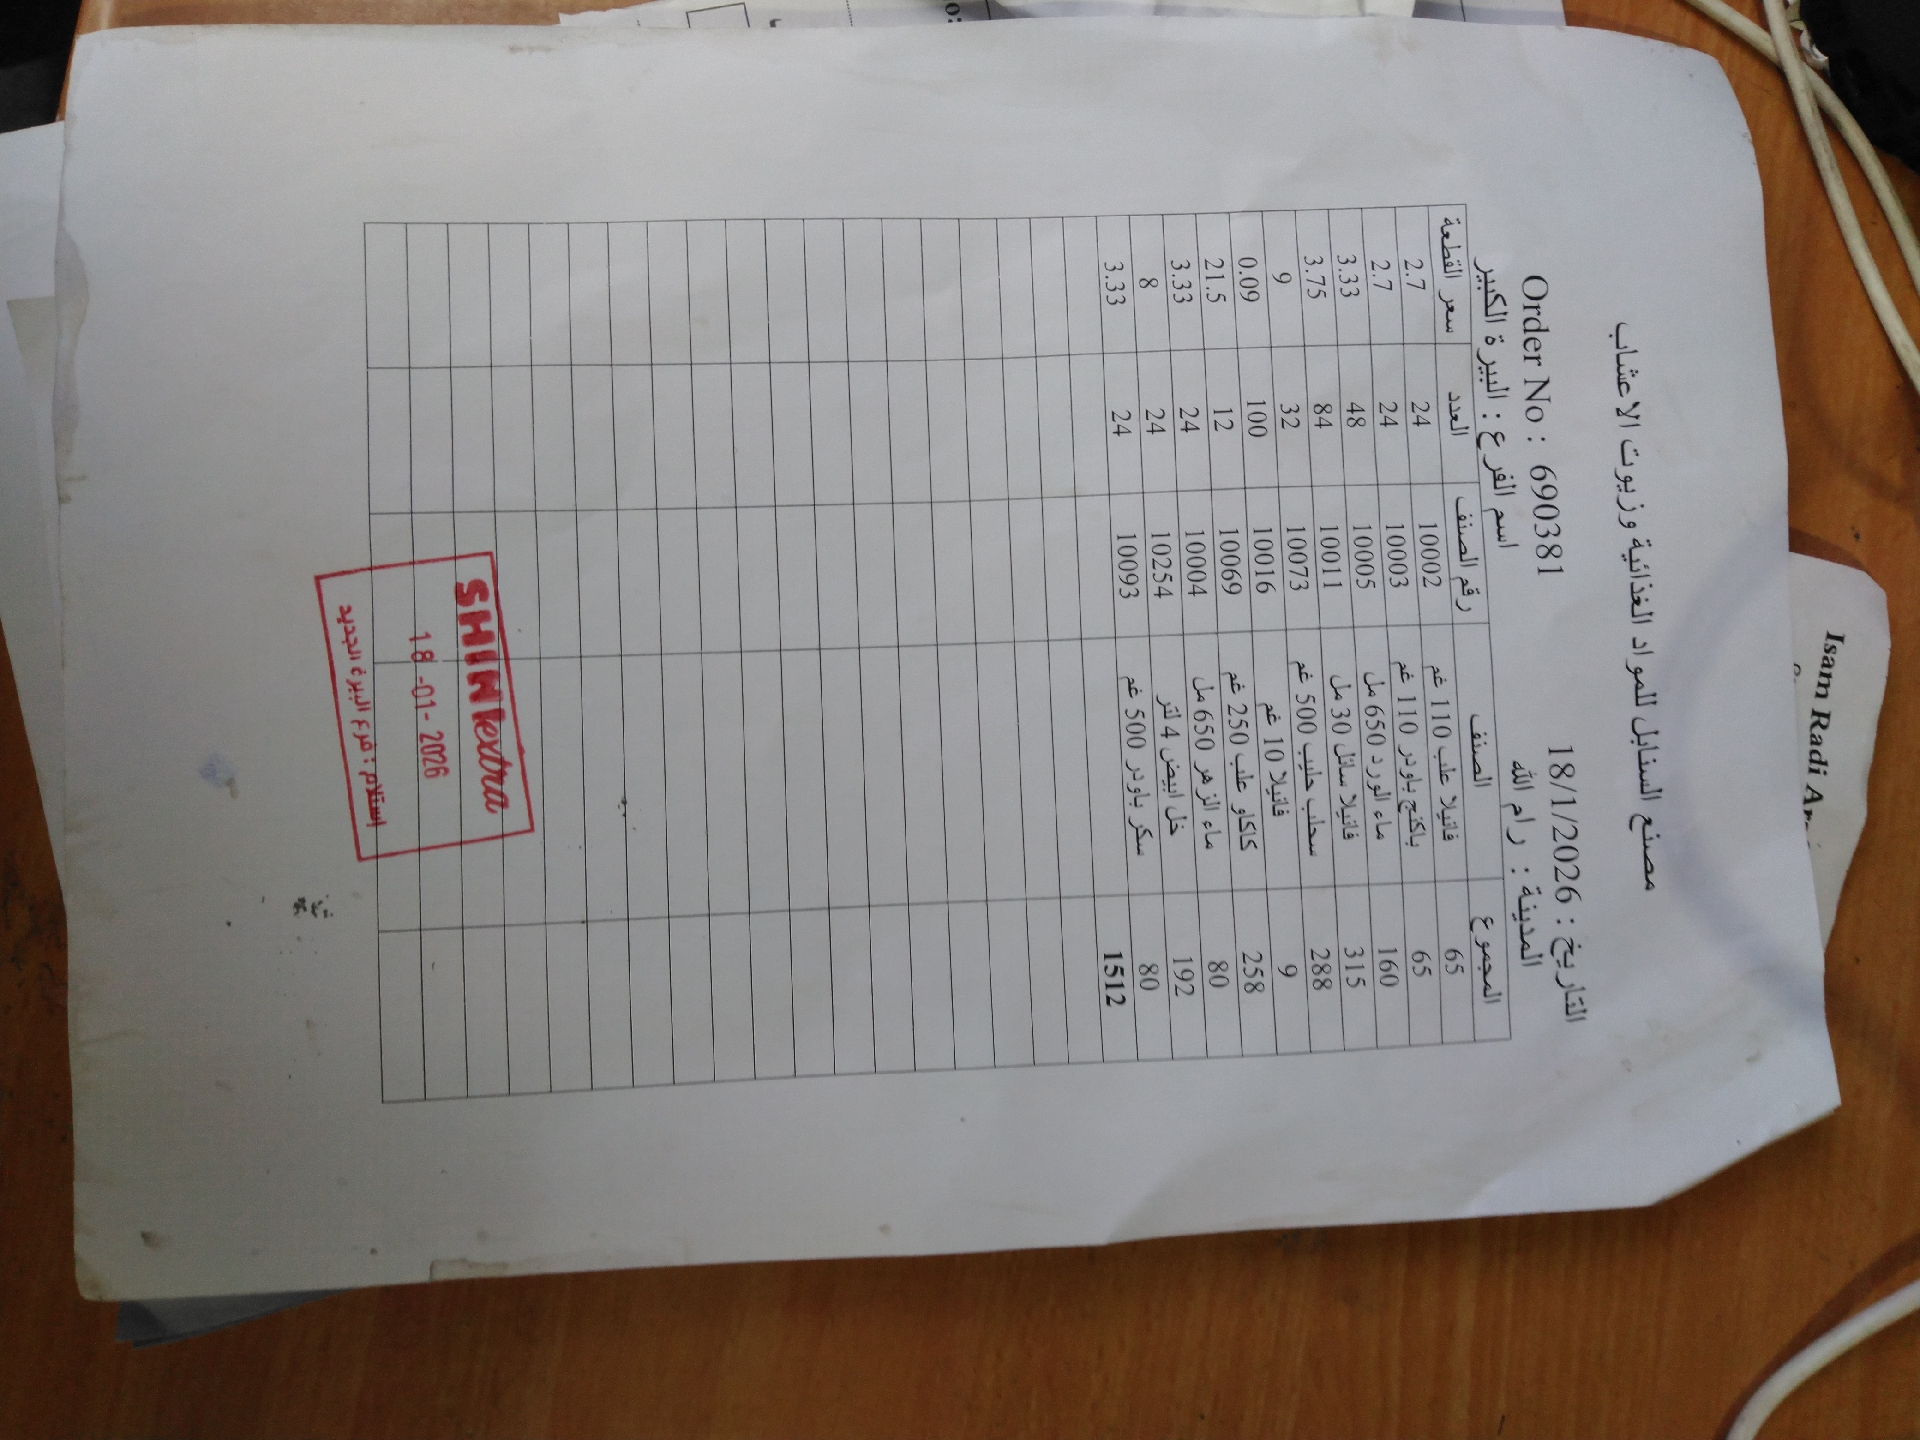 مصنع السنابل للمواد الغذائية وزيوت الاعشاب
التاريخ : 18/1/2026 Order No : 690381
المدينة : رام الله اسم الفرع : البيرة الكبير
المجموع الصنف رقم الصنف العدد سعر القطعة
65 فانيلا علب 110 غم 10002 24 2.7
65 باكنج باودر 110 غم 10003 24 2.7
160 ماء الورد 650 مل 10005 48 3.33
315 فانيلا سائل 30 مل 10011 84 3.75
288 سحلب حليب 500 غم 10073 32 9
9 فانيلا 10 غم 10016 100 0.09
258 كاكاو علب 250 غم 10069 12 21.5
80 ماء الزهر 650 مل 10004 24 3.33
192 خل ابيض 4 لتر 10254 24 8
80 سكر باودر 500 غم 10093 24 3.33
1512
SHINI extra
18 -01- 2026
إستلام : فرع البيرة الجديد
Isam Radi